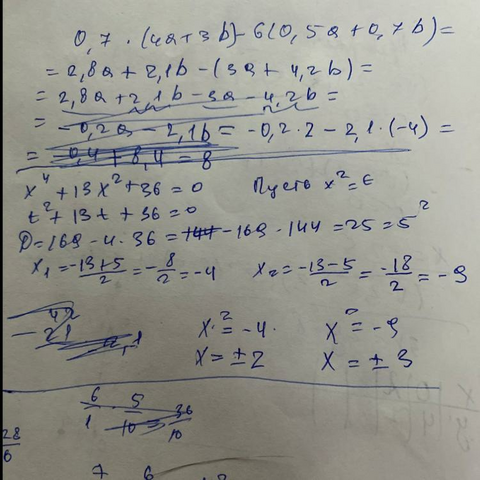 0,7 · (4a+3b)-6(0,5a+0,7b)=
=2,8a+2,1b-(3a+4,2b)=
=2,8a+2,1b-3a-4,2b=
=
-0,2a-2,1b=-0,2·2-2,1·(-4)=
=-0,4+8,4=8
x⁴+13x²+36=0 Пусть x²=t
t²+13t+36=0
D=169-4·36=144-169-144=25=5²
x₁=-13+5/2=-8/2=-4 x₂=-13-5/2=-18/2=-9
42
-21
x²=-4 x²=-9
x=±2 x=±3
6/1 · 5/10=36/10
28/6
7 6